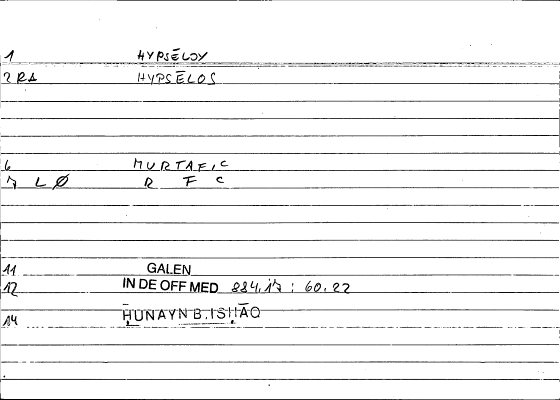 1 HYPSĒLOY
2 RA HYPSĒLOS
6 MURTAFIC
7 L Ø R F C
11 GALEN
12 IN DE OFF MED 884,17 : 60.22
14 ḤUNAYN B.ISḤĀQ